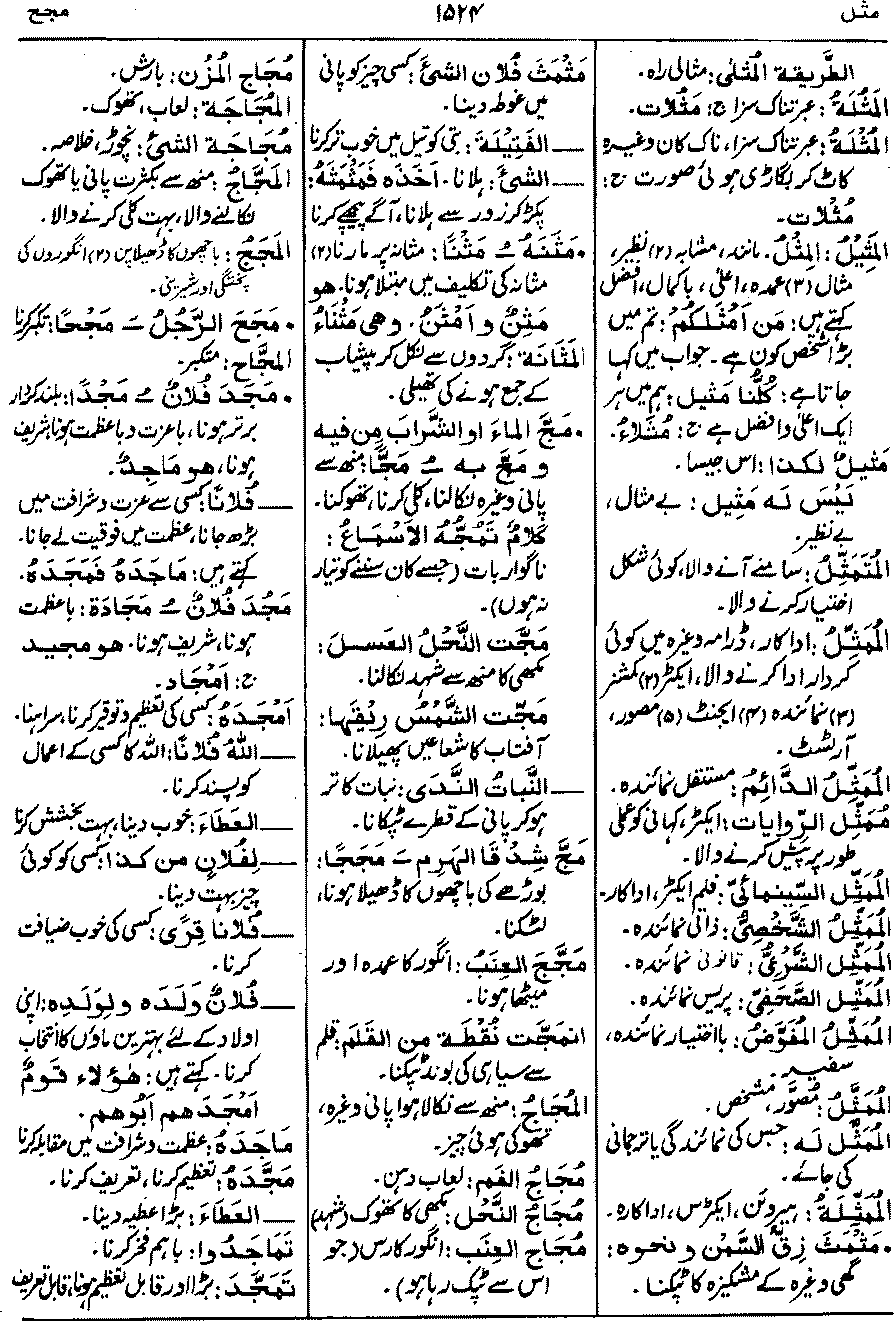 مثل
۱۵۲۴
مجح
الطَّرِيقة المُثْلٰى: مثالی راہ.
المَثُلَةُ: عبرتناک سزا ج: مَثُلات.
المُثْلَةُ: عبرتناک سزا، ناک کان وغیرہ
کاٹ کر بگاڑی ہوئی صورت ج:
مُثُلات.
المَثِيْلُ: المِثْلُ. مانند، مشابہ (۲) نظیر،
مثال (۳) عمدہ، اعلیٰ، باکمال، افضل
کہتے ہیں: مَن اَمْثَلُكُمْ: تم میں
بڑا شخص کون ہے. جواب میں کہا
جاتا ہے: كُلُّنا مَثِيل: ہم میں ہر
ایک اعلیٰ وافضل ہے ج: مُثَلاءُ.
مَثِيلٌ لكذا: اس جیسا.
لَيْسَ لَه مَثِيل: بے مثال،
بے نظیر.
المُتَمَثِّلُ: سامنے آنے والا، کوئی شکل
اختیار کرنے والا.
المُمَثِّلُ: اداکار، ڈرامہ وغیرہ میں کوئی
کردار ادا کرنے والا، ایکٹر (۲) کمشنر
(۳) نمائندہ (۴) ایجنٹ (۵) مصور،
آرٹسٹ.
المُمَثِّلُ الدَّائِمُ: مستقل نمائندہ.
مُمَثِّل الرِّوايات: ایکٹر، کہانی کو عملی
طور پر پیش کرنے والا.
المُمَثِّل السِّينمائيّ: فلم ایکٹر، اداکار.
المُمَثِّلُ الشَّخْصِيُّ: ذاتی نمائندہ.
المُمَثِّل الشَّرْعِيُّ: قانونی نمائندہ.
المُمَثِّل الصَّحَفِيّ: پریس نمائندہ.
المُمَثِّلُ المُفَوَّضُ: بااختیار نمائندہ،
سفیر.
المُمَثَّلُ: مُصوَّر، مشخص.
المُمَثَّل لَه: جس کی نمائندگی یا ترجمانی
کی جائے.
المُمَثِّلَةُ: ہیروئن، ایکٹرس، اداکارہ.
• مَثْمَثَ زِقُّ السَّمْن و نحوه:
گھی وغیرہ کے مشکیزہ کا ٹپکنا.
مَثْمَثَ فُلان الشئَ: کسی چیز کو پانی
میں غوطہ دینا.
— الفَتِيْلَةَ: بتی کو تیل میں خوب تر کرنا
— الشئَ: ہلانا. اَخَذَه فَمَثْمَثَهُ:
پکڑ کر زور سے ہلانا، آگے پیچھے کرنا
• مَثَنَهُ ـُ مَثْنًا: مثانہ پر مارنا (۲)
مثانہ کی تکلیف میں مبتلا ہونا. هو
مَثِنٌ و اَمْثَنُ. وهى مَثْنَاءُ
المَثَانَة: گردوں سے نکل کر پیشاب
کے جمع ہونے کی تھیلی.
• مَجَّ الماءَ او الشَّرابَ مِن فيه
و مَجَّ به ـُ مَجًّا: منھ سے
پانی وغیرہ نکالنا، کلی کرنا، تھوکنا.
كَلامٌ تَمُجُّه الاَسْمَاعُ:
ناگوار بات (جسے کان سننے کو تیار
نہ ہوں).
مَجَّت النَّحْلُ العَسلَ:
مکھی کا منھ سے شہد نکالنا.
مَجَّت الشَّمْسُ رِيْقَها:
آفتاب کا شعاعیں پھیلانا.
— النَّباتُ النَّدَى: نبات کا تر
ہو کر پانی کے قطرے ٹپکانا.
مَجَّ شِدْقَا الهَرِم ـَ مَجَجًا:
بوڑھے کی باچھوں کا ڈھیلا ہونا،
لٹکنا.
مَجَّجَ العِنَبُ: انگور کا عمدہ اور
میٹھا ہونا.
انمَجَّت نُقْطَة من القَلَم: قلم
سے سیاہی کی بوند ٹپکنا.
المُجَاجُ: منھ سے نکالا ہوا پانی وغیرہ،
تھوکی ہوئی چیز.
مُجَاجُ الفَم: لعاب دہن.
مُجَاجُ النَّحْل: مکھی کا تھوک (شہد)
مُجَاج العِنَب: انگور کا رس (جو
اس سے ٹپک رہا ہو).
مُجَاج المُزْن: بارش.
المُجَاجَة: لعاب، تھوک.
مُجَاجَة الشئ: نچوڑ، خلاصہ.
المَجَّاجُ: منھ سے بکثرت پانی یا تھوک
نکالنے والا، بہت کلی کرنے والا.
المَجَجُ: باچھوں کا ڈھیلا پن (۲) انگوروں کی
پختگی اور شیرینی.
• مَجَحَ الرَّجُلُ ـَ مَجْحًا: تکبر کرنا
المَجَّاح: متکبر.
• مَجَدَ فُلانٌ ـُ مَجْدًا: بلند کردار
برتر ہونا، باعزت و باعظمت ہونا، شریف
ہونا، هو مَاجِدٌ.
— فُلانًا: کسی سے عزت و شرافت میں
بڑھ جانا، عظمت میں فوقیت لے جانا.
کہتے ہیں: مَاجَدَهُ فَمَجَدَهُ.
مَجُدَ فُلانٌ ـُ مَجَادَة: باعظمت
ہونا، شریف ہونا. هو مجيد
ج: اَمْجَاد.
اَمْجَدَهُ: کسی کی تعظیم و توقیر کرنا، سراہنا.
— اللهُ فُلانًا: اللہ کا کسی کے اعمال
کو پسند کرنا.
— العَطَاءَ: خوب دینا، بہت بخشش کرنا
— لِفُلانٍ من كذا: کسی کو کوئی
چیز بہت دینا.
— فُلانا قِرًى: کسی کی خوب ضیافت
کرنا.
— فُلانٌ وَلَدَه ولِوَلَدِه: اپنی
اولاد کے لئے بہترین ماؤں کا انتخاب
کرنا. کہتے ہیں: هٰؤلاء قومٌ
اَمْجَدَهم اَبُوهم.
مَاجَدَهُ: عظمت و شرافت میں مقابلہ کرنا
مَجَّدَهُ: تعظیم کرنا، تعریف کرنا.
— العَطَاءَ: بڑا عطیہ دینا.
تَمَاجَدُوا: باہم فخر کرنا.
تَمَجَّدَ: بڑا اور قابل تعظیم ہونا، قابل تعریف